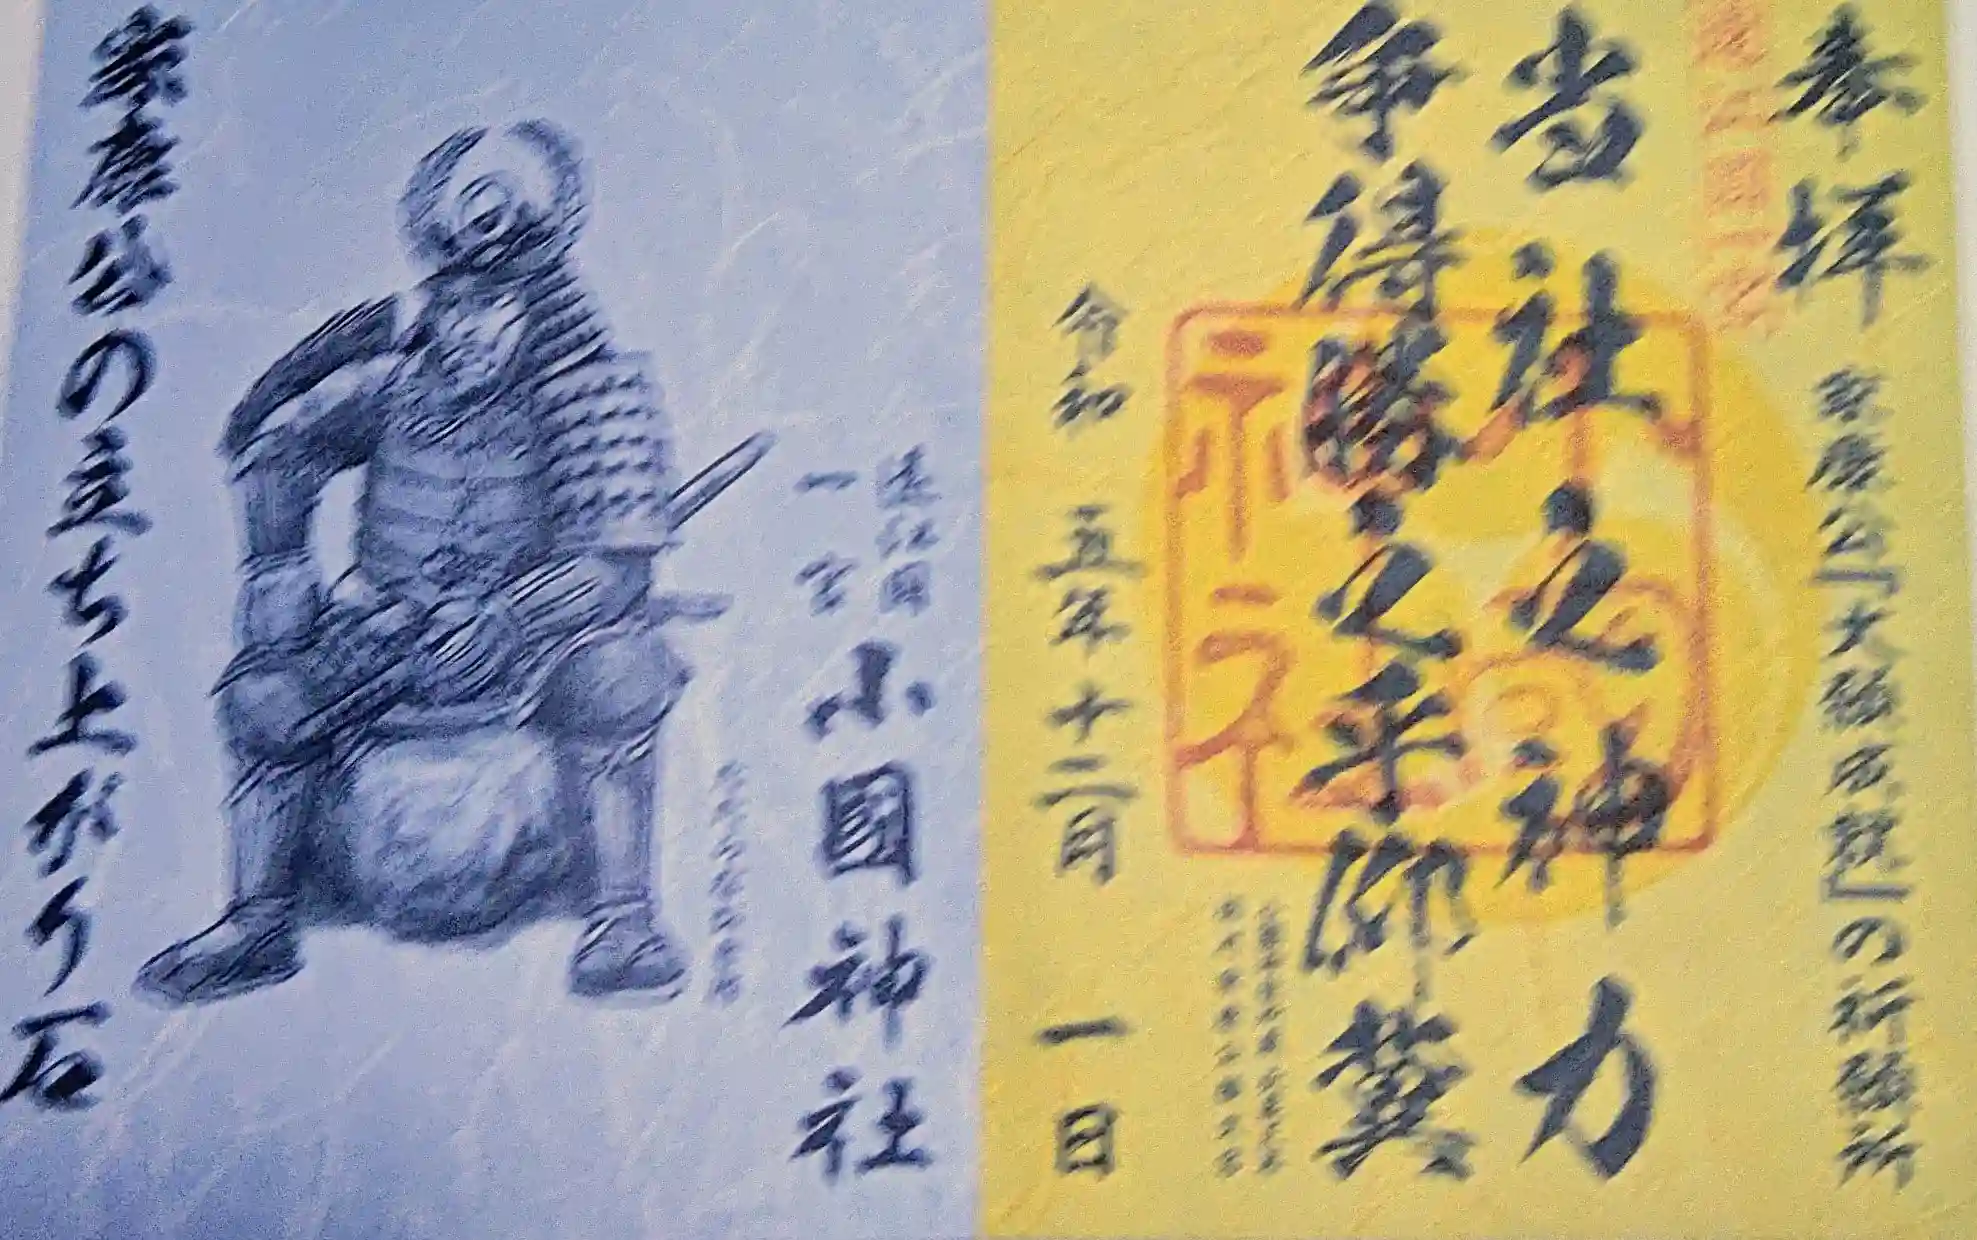 奉拝
家康公「大願成就」の祈願所
遠江國一宮
当社之神力
争得勝之乎仰冀
令和五年十二月一日
遠江國
一宮
小國神社
家康公の立ち上がり石